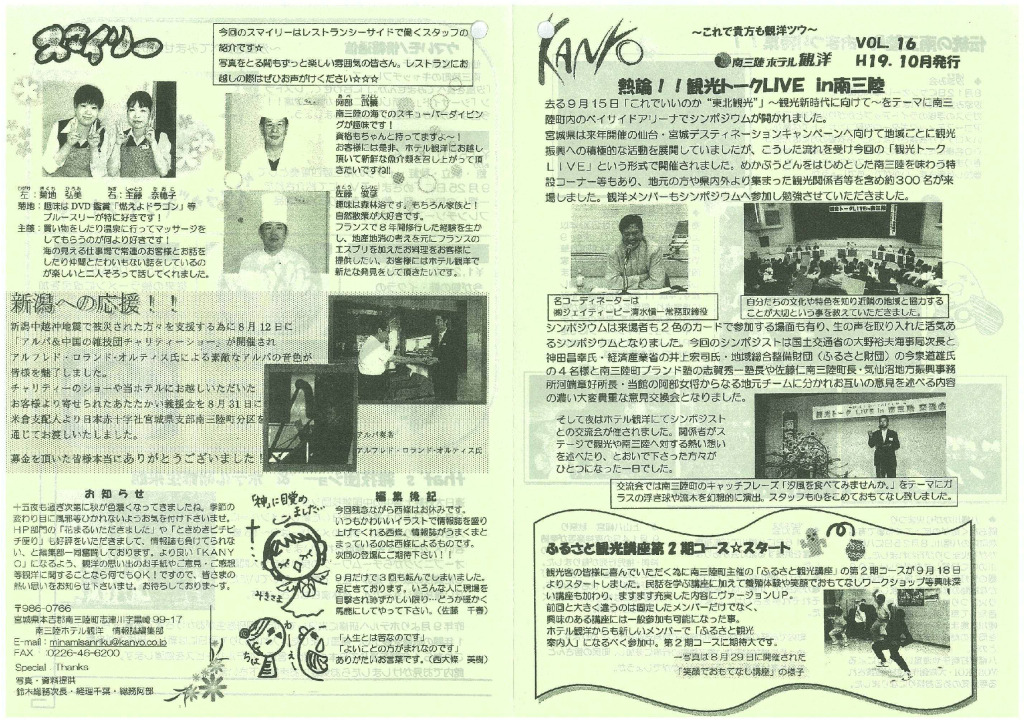 KANYO
〜これで貴方も観洋ツウ〜
南三陸 ホテル 観洋
VOL. 16
H19. 10月発行
熱論!!観光トークLIVE in南三陸
去る9月15日「これでいいのか“東北観光”」〜観光新時代に向けて〜をテーマに南三
陸町内のベイサイドアリーナでシンポジウムが開かれました。
宮城県は来年開催の仙台・宮城デスティネーションキャンペーンへ向けて地域ごとに観光
振興への積極的な活動を展開していましたが、こうした流れを受け今回の「観光トーク
LIVE」という形式で開催されました。めかぶうどんをはじめとした南三陸を味わう特
設コーナー等もあり、地元の方や県内外より集まった観光関係者等を含め約300名が来
場しました。観洋メンバーもシンポジウムへ参加し勉強させていただきました。
名コーディネーターは
㈱ジェイティービー清水愼一常務取締役
自分たちの文化や特色を知り近隣の地域と協力する
ことが大切という事を教えていただきました。
シンポジウムは来場者も2色のカードで参加する場面も有り、生の声を取り入れた活気あ
るシンポジウムとなりました。今回のシンポジストは国土交通省の大野裕夫海事局次長と
神田昌幸氏・経済産業省の井上宏司氏・地域総合整備財団(ふるさと財団)の今泉道雄氏
の4名様と南三陸町ブランド塾の志賀秀一塾長や佐藤仁南三陸町長・気仙沼地方振興事務
所河端章好所長・当館の阿部女将からなる地元チームに分かれお互いの意見を述べる内容
の濃い大変貴重な意見交換会となりました。
そして夜はホテル観洋にてシンポジスト
との交流会が催されました。関係者がス
テージで観光や南三陸へ対する熱い想い
を述べたり、とおいで下さった方々が
ひとつになった一日でした。
観光トーク LIVE in 南三陸 交流会
交流会では南三陸町のキャッチフレーズ「汐風を食べてみませんか。」をテーマにガ
ラスの浮き球や流木を幻想的に演出。スタッフも心をこめておもてなし致しました。
ふるさと観光講座第2期コース☆スタート
観光客の皆様に喜んでいただく為に南三陸町主催の「ふるさと観光講座」の第2期コースが9月18日
よりスタートしました。民話を学ぶ講座に加えて養殖体験や笑顔でおもてなしワークショップ等興味深
い講座も加わり、ますます充実した内容にヴァージョンUP。
前回と大きく違うのは固定したメンバーだけでなく、
興味のある講座には一般参加も可能になった事。
ホテル観洋からも新しいメンバーで「ふるさと観光
案内人」になるべく参加中。第2期コースに期待大です。
→写真は8月29日に開催された
「笑顔でおもてなし講座」の様子
スマイリー
今回のスマイリーはレストランシーサイドで働くスタッフの
紹介です☆
写真をとる間もずっと楽しい雰囲気の皆さん。レストランにお
越しの際はぜひお声がけください☆☆☆
左:菊地 弘美 右:主藤 奈穂子
菊地:趣味はDVD鑑賞「燃えよドラゴン」等
ブルースリーが特に好きです!
主藤:買い物をしたり温泉に行ってマッサージを
してもらうのが何より好きです!
海の見える仕事場で常連のお客様とお話を
したり仲間とたわいもない話をしているの
が楽しいと二人そろって話してくれました。
阿部 武義
南三陸の海でのスキューバーダイビング
が趣味です!
資格もちゃんと持ってますよ〜!
お客様には是非、ホテル観洋にお越し
頂いて新鮮な魚介類を召し上がって頂
きたいですね!!
佐藤 俊彦
趣味は森林浴です。もちろん家族と!
自然散策が大好きです。
フランスで8年間修行した経験を生か
し、地産地消の考えを元にフランスの
エスプリを加えたお料理をお客様に
提供したい。お客様にはホテル観洋で
新たな発見をして頂きたいです。
新潟への応援!!
新潟中越沖地震で被災された方々を支援する為に8月12日に
「アルパ&中国の雑技団チャリティーショー」が開催され
アルフレド・ロランド・オルティス氏による素敵なアルパの音色が
皆様を魅了しました。
チャリティーのショーや当ホテルにお越しいただいた
お客様より寄せられたあたたかい義援金を8月31日に
米倉支配人より日本赤十字社宮城県支部南三陸町分区を
通じてお渡しいたしました。
募金を頂いた皆様本当にありがとうございました!
アルパ奏者
アルフレド・ロランド・オルティス氏
お知らせ
十五夜も過ぎ次第に秋が色濃くなってきましたね。季節の
変わり目に風邪等ひかれないようお気を付け下さいませ。
HP部門の「花まるいただきました」や「ときめきピチピ
チ便り」も好評をいただきまして、情報誌も負けてられな
い、と編集部一同奮闘しております。より良い「KANY
O」になるよう、観洋の思い出のお手紙やご意見・ご感想
等観洋に関することなら何でもOK!ですので、皆さまの
熱い思いをお知らせ下さいませ。お待ちしておりま〜す。
〒986-0766
宮城県本吉郡南三陸町志津川字黒崎99-17
南三陸ホテル観洋 情報誌編集部
E-mail:minamisanriku@kanyo.co.jp
FAX :0226-46-6200
Special Thanks
写真・資料提供
鈴木総務次長・経理千葉・総務阿部
神に目覚め
ました…
みきさま
ちは
編集後記
今回残念ながら西條はお休みです。
いつもかわいいイラストで情報誌を盛り
上げてくれる西條。情報誌がうまくまと
まっているのは西條によるものです。
次回の登場にご期待下さい!!
9月だけで3回も転んでしまいました。
足にきております。いろんな人に現場を
目撃され恥ずかしい限り…どうか暖かく
馬鹿にしてやって下さい。(佐藤 千春)
「人生とは苦なのです」
「よいことの方がまれなのです」
ありがたいお言葉です。(西大條 美樹)